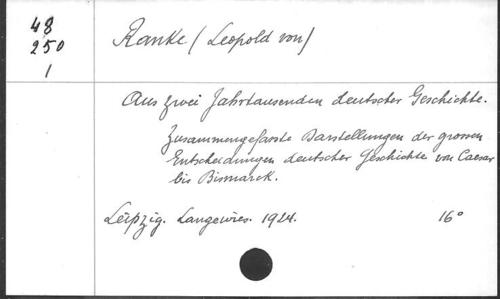 48
250
1
Ranke (Leopold von)
Aus zwei Jahrtausenden deutscher Geschichte.
Zusammengefasste Darstellungen der grossen
Entscheidungen deutscher Geschichte von Caesar
bis Bismarck.
Leipzig. Langewies. 1924. 16°